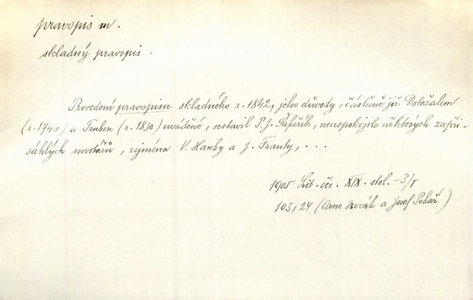 pravopis m.
skladný pravopis.
Provedení pravopisu skladného r. 1842, jeho důvody, částečně již Doležalem
(r. 1746) a Trnkou (r. 1830) uváděné, sestavil P. J. Šafařík, neuspokojilo některých zapři-
sáhlých novotářů, zejména V. Hanky a J. Franty, . . .
1905 Lit. čes. XIX. stol. - 3/I
103, 24 (Arne Novák a Josef Pekař)